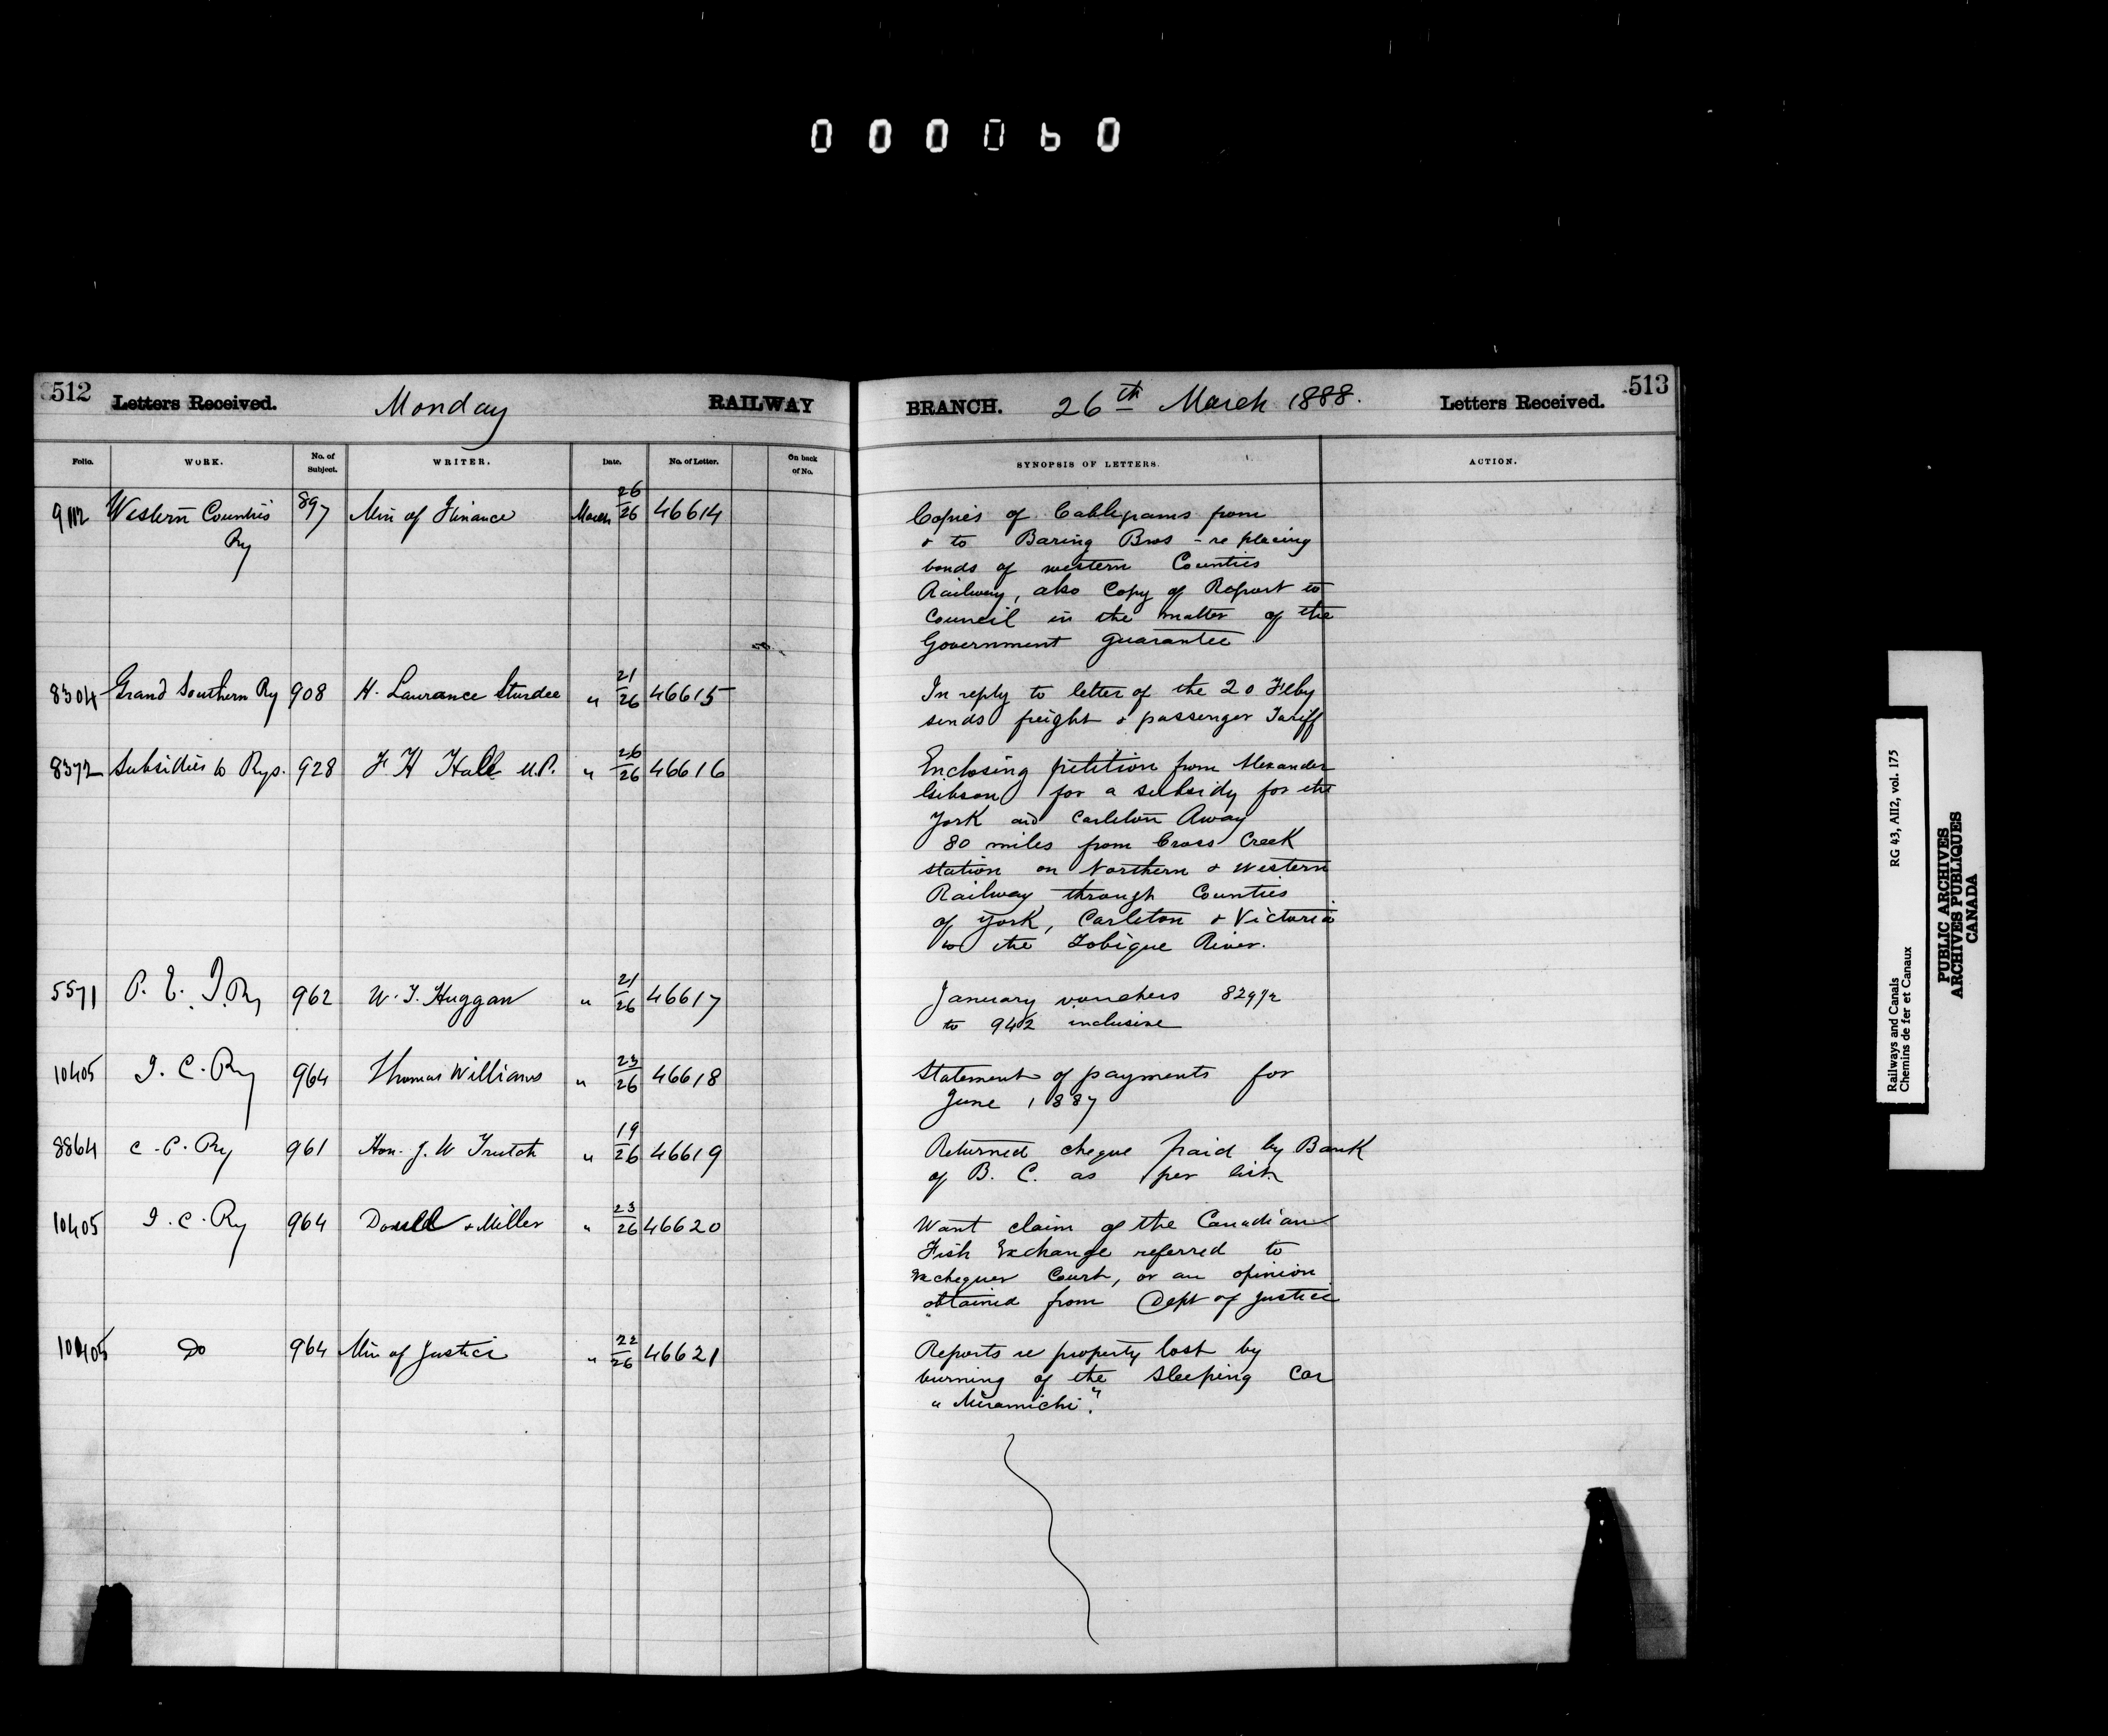 000060
512 Letters Received. Monday RAILWAY
Folio. WORK. No. of Subject. WRITER. Date. No. of Letter. On back of No.
9112 Western Counties Ry 897 Min of Finance March 26/26 46614
8304 Grand Southern Ry 908 H. Laurance Sturdee " 21/26 46615
8372 Subsidies to Rys. 928 F. H Hale M.P. " 26/26 46616
5571 P. E. I. Ry 962 W. T. Huggan " 21/26 46617
10405 I. C. Ry 964 Thomas Williams " 23/26 46618
8864 C. P. Ry 961 Hon. J. W Trutch " 19/26 46619
10405 I. C. Ry 964 & Miller " 23/26 46620
10405 Do 964 Min of Justice " 22/26 46621
BRANCH. 26th March 1888. Letters Received. 513
SYNOPSIS OF LETTERS. ACTION.
Copies of Cablegrams from
& to Baring Bros - re placing
bonds of western Counties
Railway, also Copy of Report to
Council in the matter of the
Government guarantee
In reply to letter of the 20 Feby
sends freight & passenger Tariff
Enclosing petition from Alexander
Gibson for a subsidy for the
York and Carleton Rway
80 miles from Cross Creek
station on Northern & Western
Railway through Counties
of York, Carleton & Victoria
to the Tobique River.
January vouchers 829½
to 942 inclusive
Statement of payments for
June 1887
Returned cheque paid by Bank
of B. C. as per list
Want claim of the Canadian
Fish Exchange referred to
Exchequer Court, or an opinion
obtained from Dept of Justice
Reports re property lost by
burning of the Sleeping Car
"Miramichi".
Railways and Canals RG 43, AIII2, vol. 175
Chemins de fer et Canaux
PUBLIC ARCHIVES
ARCHIVES PUBLIQUES
CANADA